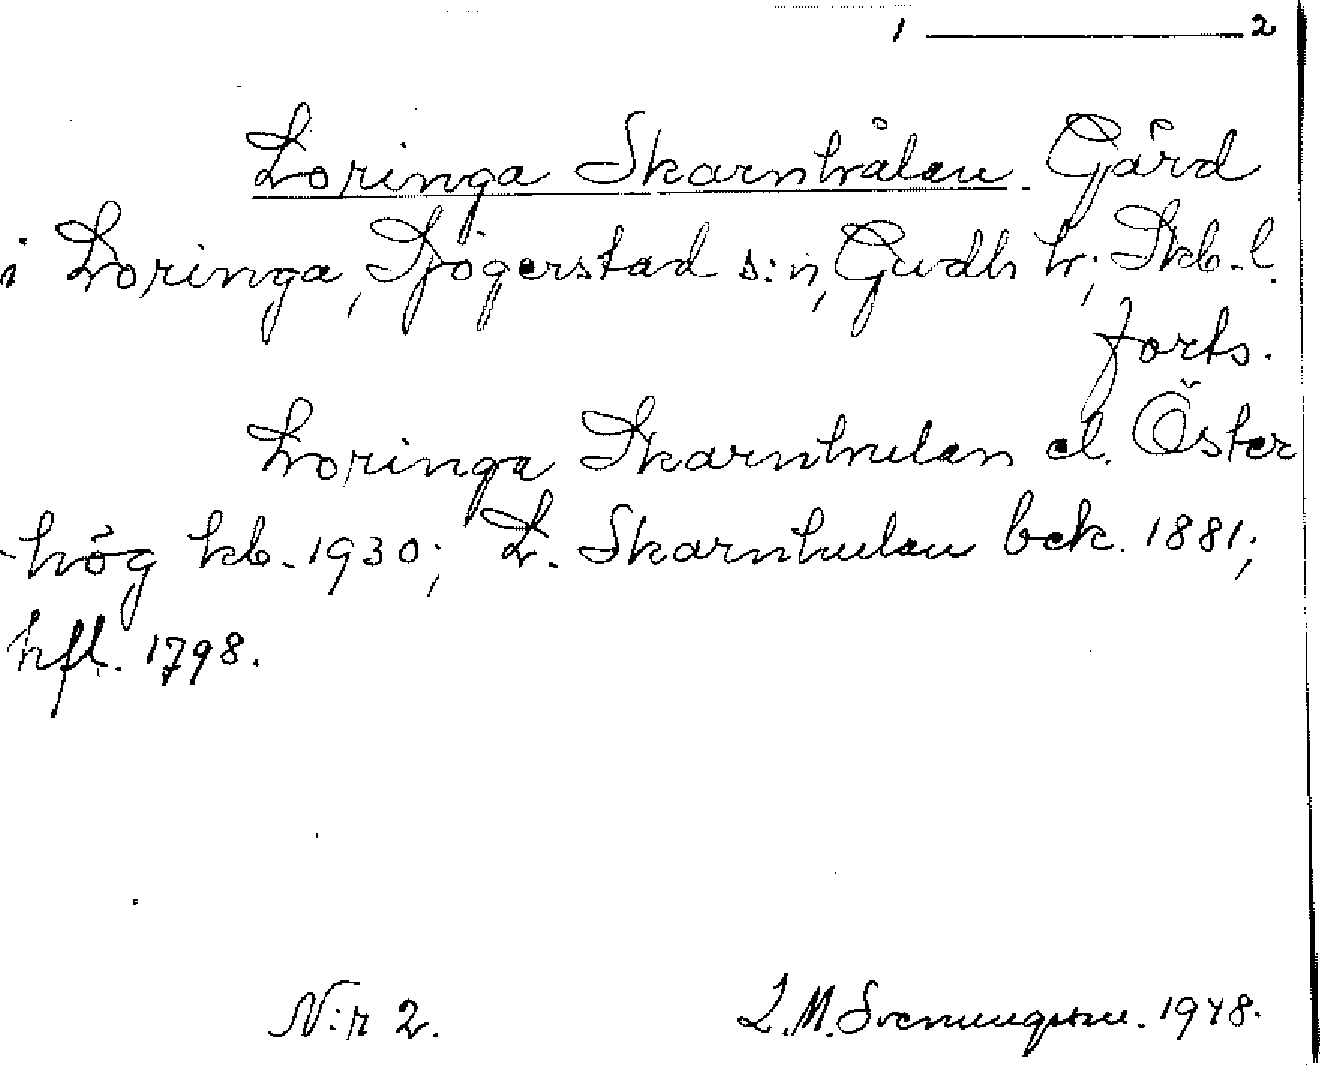 1 ——— 2
Loringa Skarnhålan Gård
i Loringa, Sjögerstad s:n, Gudh hr, Skb. l.
forts.
Loringa Skarnhulan el. Öster
-hög kb. 1930; L. Skarnhulan bck. 1881;
hfl. 1798.
N:r 2. L.M. Svenungsson. 1948.